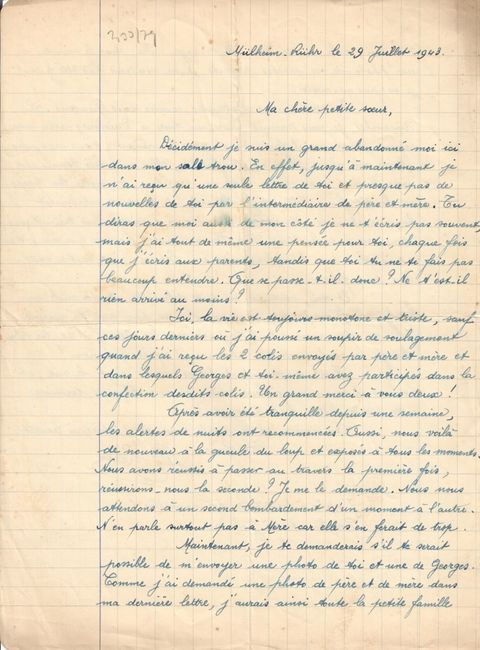 233/79
Mülheim-Ruhr le 29 Juillet 1943.
Ma chère petite sœur,
Décidément je suis un grand abandonné moi ici
dans mon sale trou. En effet, jusqu'à maintenant je
n'ai reçu qu'une seule lettre de toi et presque pas de
nouvelles de toi par l'intermédiaire de père et mère. Tu
diras que moi aussi de mon côté je ne t'écris pas souvent,
mais j'ai tout de même une pensée pour toi, chaque fois
que j'écris aux parents, tandis que toi tu ne te fais pas
beaucoup entendre. Que se passe-t-il donc ? Ne t'est-il
rien arrivé au moins ?
Ici, la vie est toujours monotone et triste, sauf
ces jours derniers où j'ai poussé un soupir de soulagement
quand j'ai reçu les 2 colis envoyés par père et mère et
dans lesquels Georges et toi-même avez participés dans la
confection desdits colis. Un grand merci à vous deux !
Après avoir été tranquille depuis une semaine,
les alertes de nuits ont recommencées. Aussi, nous voilà
de nouveau à la gueule du loup et exposés à tous les moments.
Nous avons réussis à passer au travers la première fois,
réussirons-nous la seconde ? Je me le demande. Nous nous
attendons à un second bombardement d'un moment à l'autre.
N'en parle surtout pas à Mère car elle s'en ferait de trop.
Maintenant, je te demanderais s'il te serait
possible de m'envoyer une photo de toi et une de Georges.
Comme j'ai demandé une photo de père et de mère dans
ma dernière lettre, j'aurais ainsi toute la petite famille